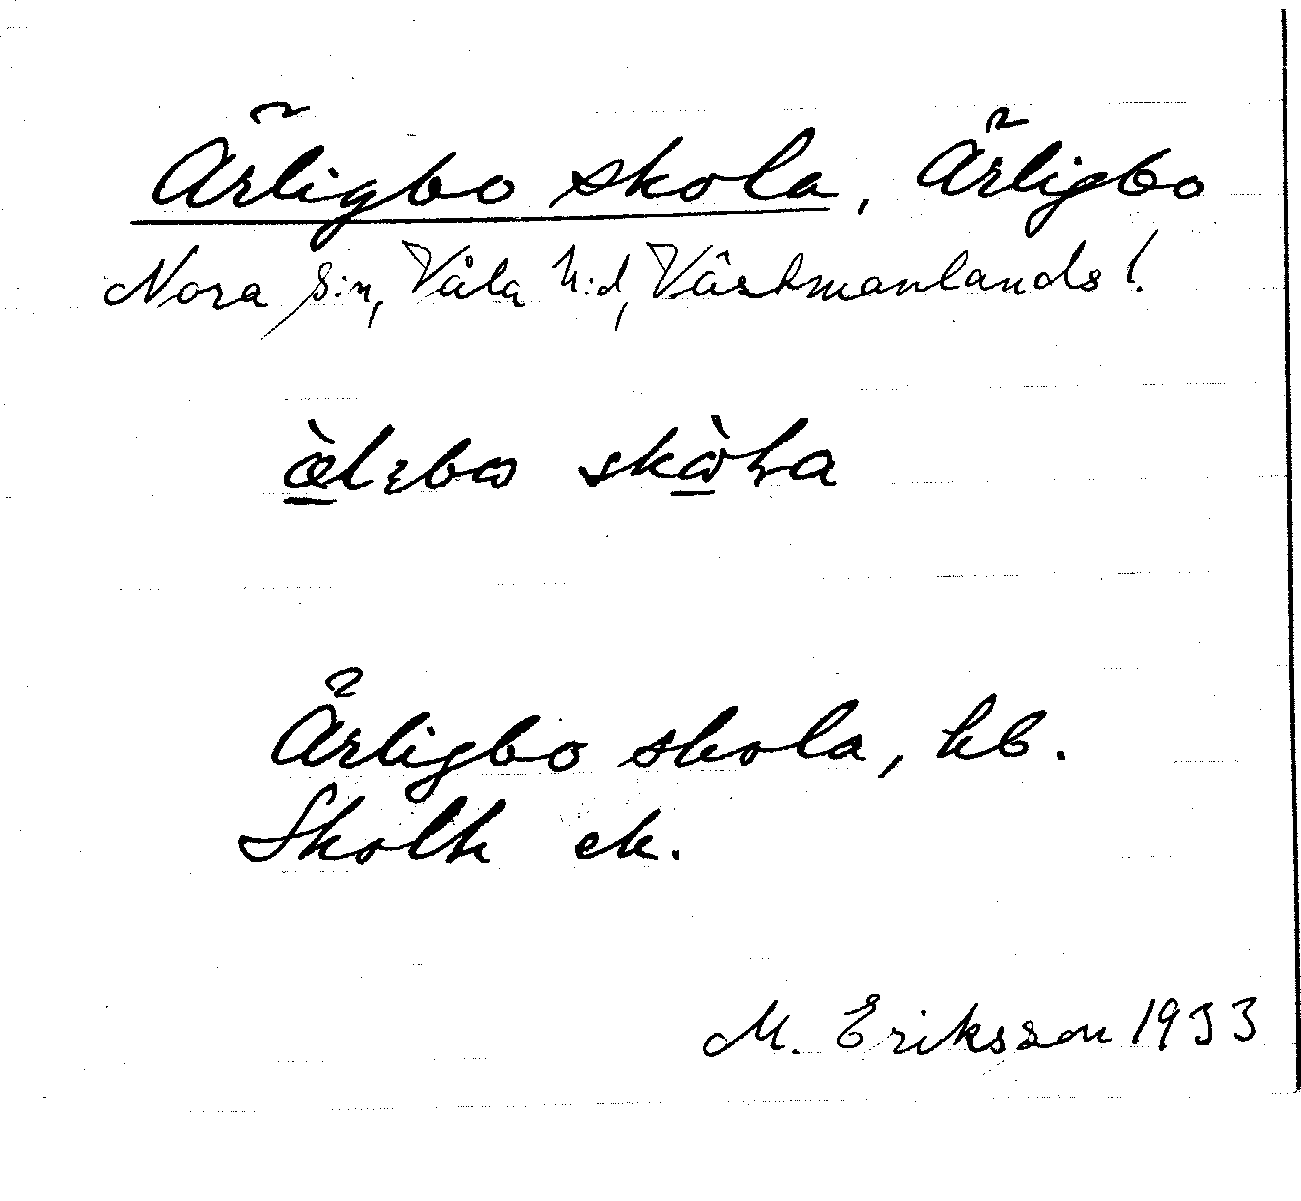 Ärligbo skola, Ärligbo
Nora s:n, Våla h:d, Västmanlands l.
skola
Ärligbo skola, kb.
Skolk ek.
M. Eriksson 1933